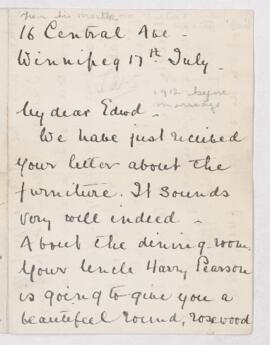 from his mother
16 Central Ave -
Winnipeg 17th July -
1912 before
marriage
My dear Edwd -
We have just received
your letter about the
furniture. It sounds
very well indeed -
About the dining-room,
Your Uncle Harry Pearson
is going to give you a
beautiful round, rosewood